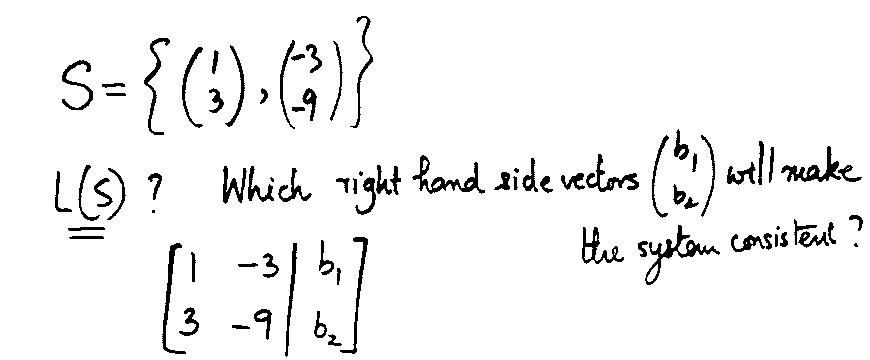 S = { (1 3), (-3 -9) }
L(S) ? Which right hand side vectors (b₁ b₂) will make
the system consistent ?
[ 1 -3 | b₁
3 -9 | b₂ ]